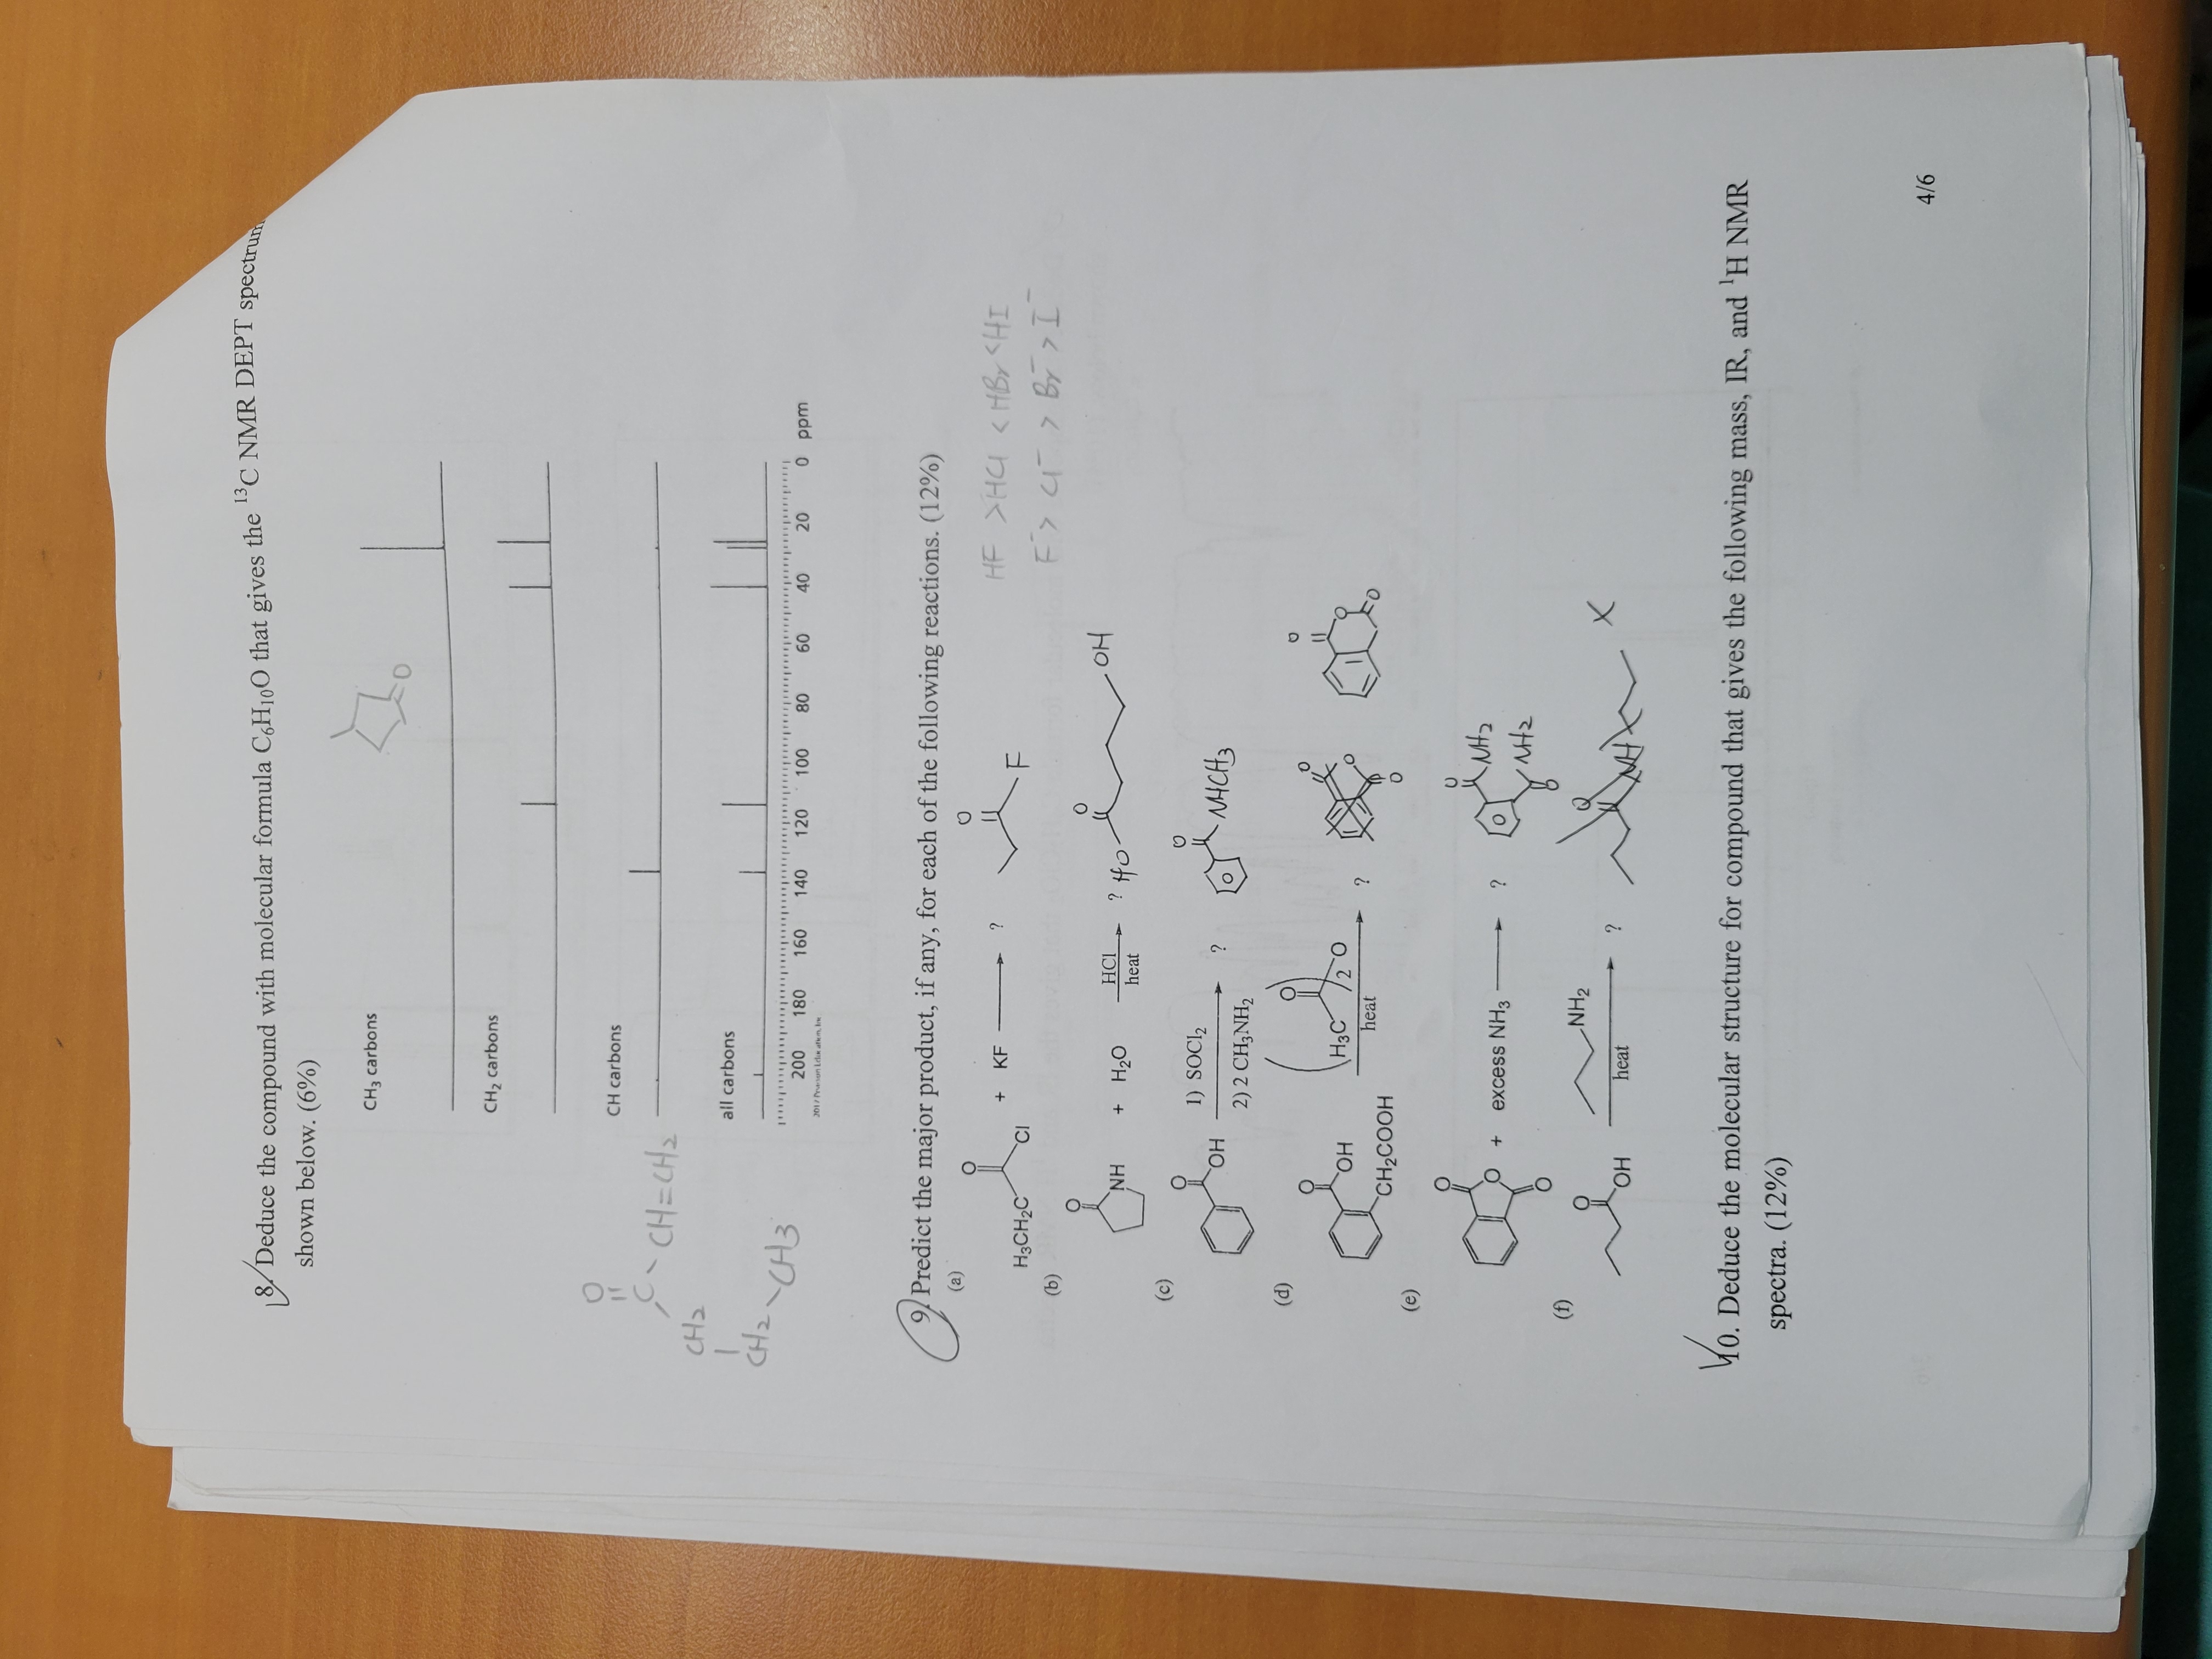 8. Deduce the compound with molecular formula C₆H₁₀O that gives the ¹³C NMR DEPT spectrum
shown below. (6%)
CH₃ carbons
O
CH₂ carbons
O
C CH=CH₂
CH₂
CH₂ CH3
CH carbons
all carbons
200 180 160 140 120 100 80 60 40 20 0 ppm
2017 Pearson Education, Inc.
9. Predict the major product, if any, for each of the following reactions. (12%)
(a)
O
H₃CH₂C Cl + KF ? O F
HF >HCl <HBr <HI
F⁻> Cl⁻ > Br⁻ > I⁻
(b)
O NH + H₂O HCl heat ? HO O OH
(c)
O OH 1) SOCl₂ 2) 2 CH₃NH₂ ? O NHCH3
(d)
O OH CH₂COOH (H₃C O )₂ O heat ? O O O O O O
(e)
O O O + excess NH₃ ? O NH₂ NH₂ O
(f)
O OH NH₂ heat ? O NH X
10. Deduce the molecular structure for compound that gives the following mass, IR, and ¹H NMR
spectra. (12%)
4/6